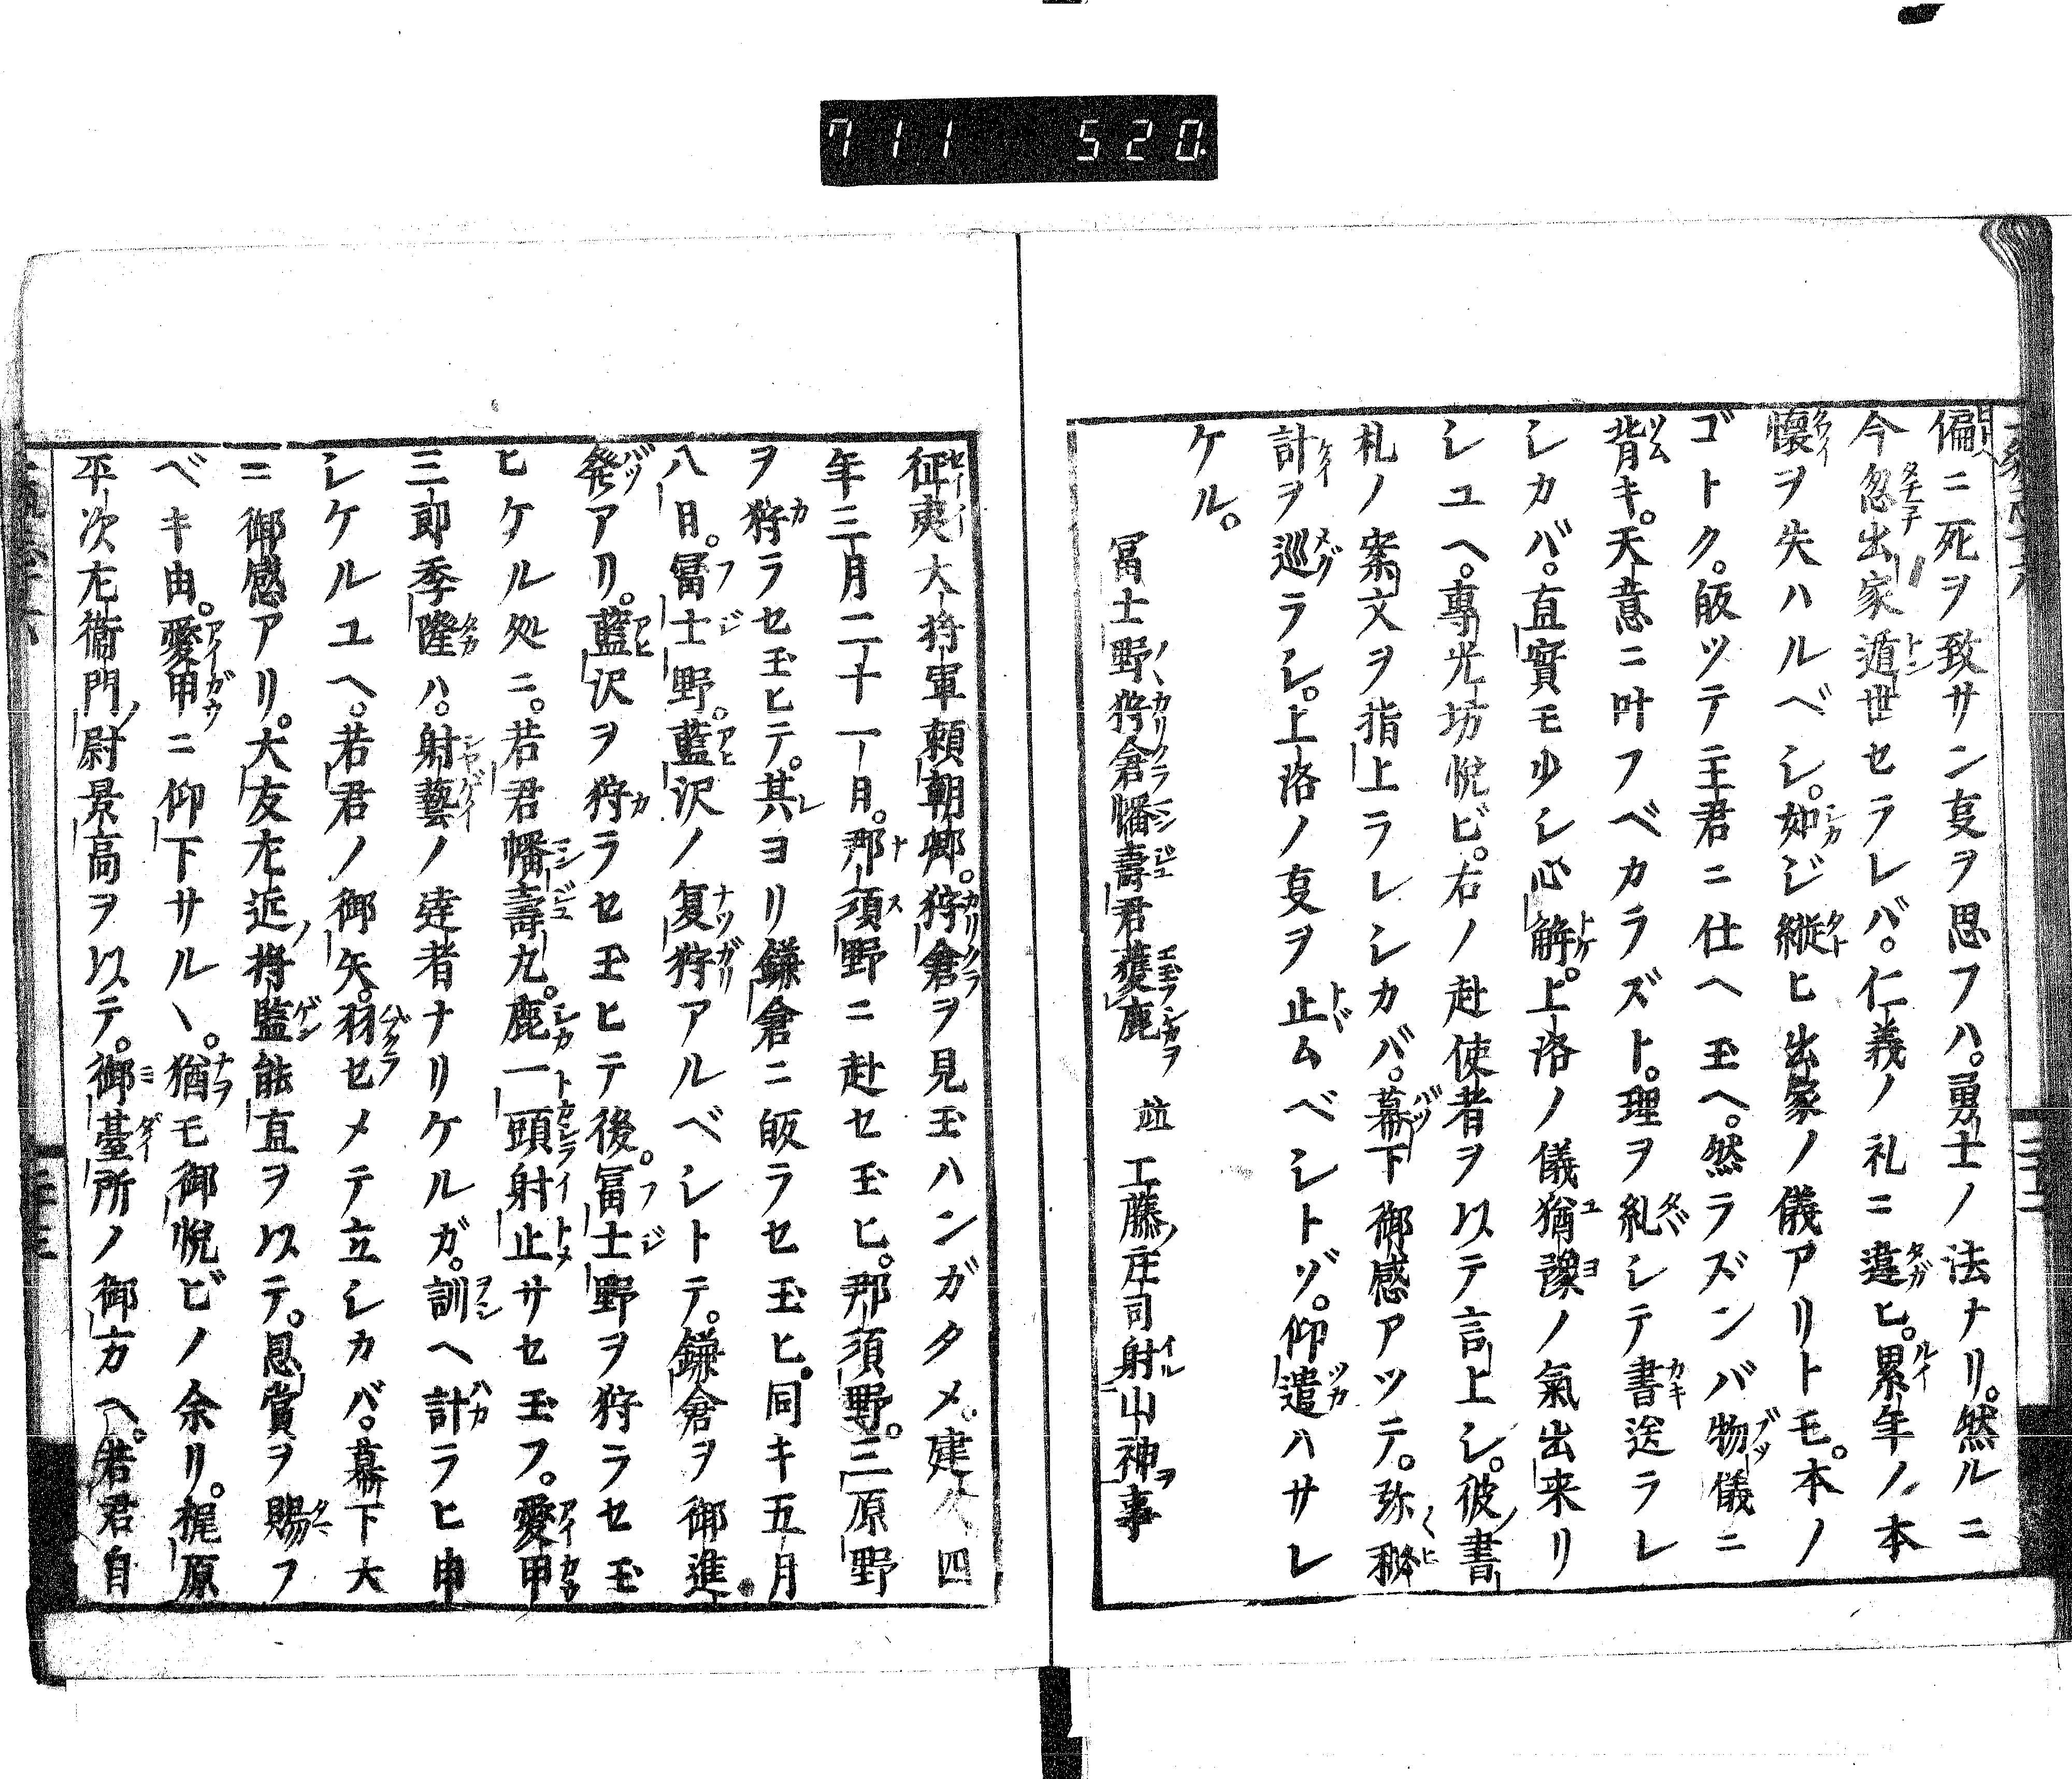 711 520
偏ニ死ヲ致サン㕝ヲ思フハ。勇士ノ法ナリ。然ルニ
今忽出家遁世セラレバ。仁義ノ礼ニ違ヒ。累年ノ本
懐ヲ失ハルベシ。如ジ縦ヒ出家ノ儀アリトモ。本ノ
ゴトク。皈ツテ主君ニ仕ヘ玉ヘ。然ラズンバ物儀ニ
背キ。天意ニ叶フベカラズト。理ヲ糺シテ書送ラレ
シカバ。直實モ少シ心解。上洛ノ儀猶豫ノ氣出来リ
シユヘ。專光坊悦ビ。右ノ赴使者ヲ以テ言上シ。彼書
札ノ案文ヲ指上ラレシカバ。幕下御感アツテ。弥秘
計ヲ巡ラシ。上洛ノ㕝ヲ止ムベシトゾ。仰遣ハサレ
ケル。
冨士野狩倉幡壽君獲鹿 竝 工藤庄司射山神事
征夷大将軍頼朝卿。狩倉ヲ見玉ハンガタメ。建久四
年三月二十一日。那須野ニ赴セ玉ヒ。那須野。三原野
ヲ狩ラセ玉ヒテ。其ヨリ鎌倉ニ皈ラセ玉ヒ。同キ五月
八日。冨士野。藍沢ノ夏狩アルベシトテ。鎌倉ヲ御進
発アリ。藍沢ヲ狩ラセ玉ヒテ後。冨士野ヲ狩ラセ玉
ヒケル処ニ。若君幡壽丸。鹿一頭射止サセ玉フ。愛甲
三郎季隆ハ。射藝ノ達者ナリケルガ。訓ヘ計ラヒ申
シケルユヘ。若君ノ御矢。羽セメテ立シカバ。幕下大
ニ御感アリ。大友左近将監能直ヲ以テ。恩賞ヲ賜フ
ベキ由。愛甲ニ仰下サル丶。猶モ御悦ビノ余リ。梶原
平次左衞門尉景高ヲ以テ。御臺所ノ御方ヘ。若君自